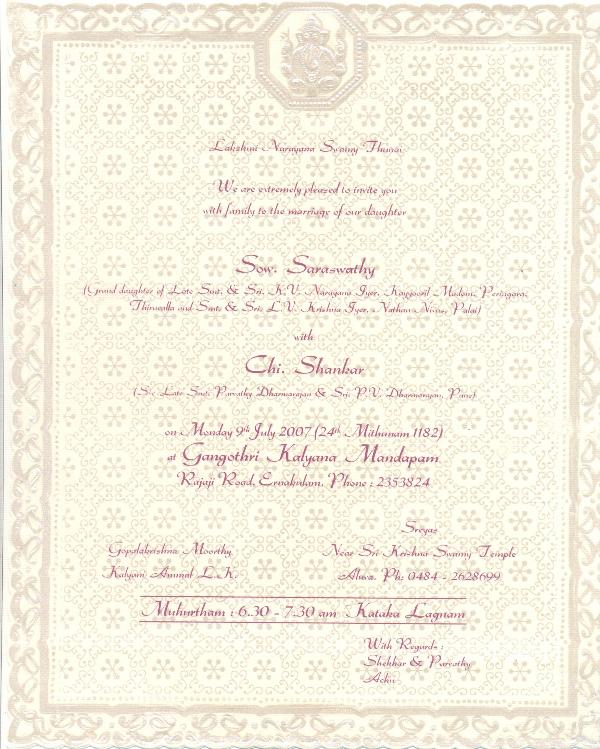 Lakshmi Narayana Swamy Thunai
We are extremely pleased to invite you
with family to the marriage of our daughter
Sow. Saraswathy
(Grand daughter of Late Smt. & Sri. K.V. Narayana Iyer, Kayyooril Madom, Peringara,
Thiruvalla and Smt. & Sri. L.V. Krishna Iyer, Nathan Nivas, Palai)
with
Chi. Shankar
(S/o Late Smt. Parvathy Dharmarajan & Sri. P.V. Dharmarajan, Pune)
on Monday 9th July 2007 (24th Mithunam 1182)
at Gangothri Kalyana Mandapam
Rajaji Road, Ernakulam, Phone : 2353824
Sreyas
Gopalakrishna Moorthy
Near Sri Krishna Swamy Temple
Kalyani Ammal L.K.
Aluva. Ph: 0484 - 2628699
Muhurtham : 6.30 - 7.30 am Kataka Lagnam
With Regards :
Shekhar & Parvathy